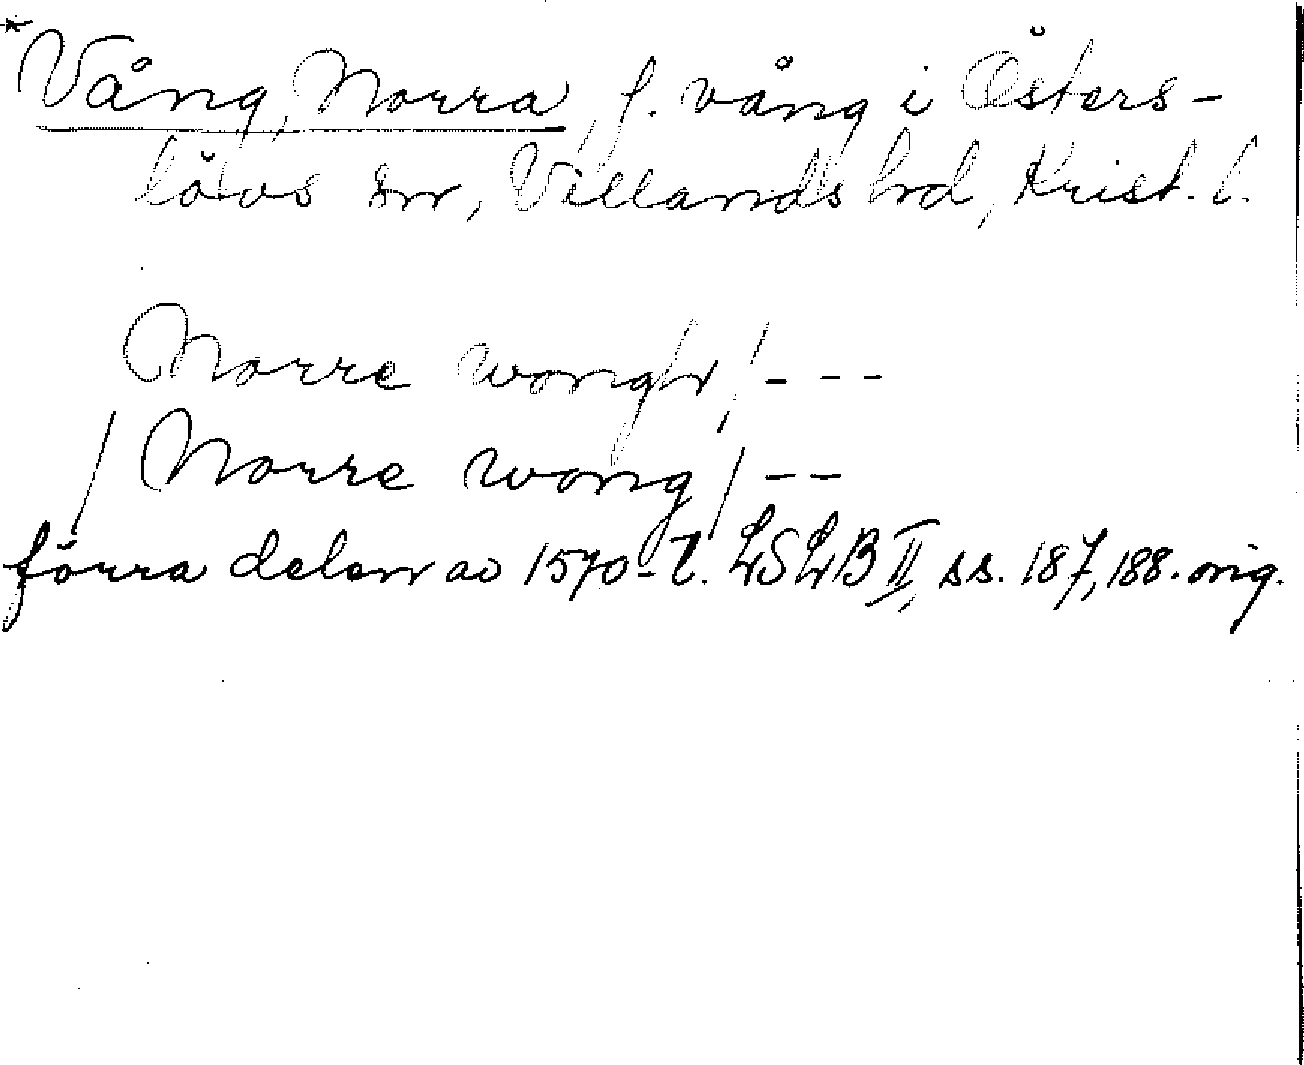 *Vång, Norra, f. vång i Östers-
lövs sn, Villands hd, Krist. l.
Norre wongh / - - -
/ Norre wong / - -
förra delen av 1570-t. LSLB II, ss. 187, 188. orig.